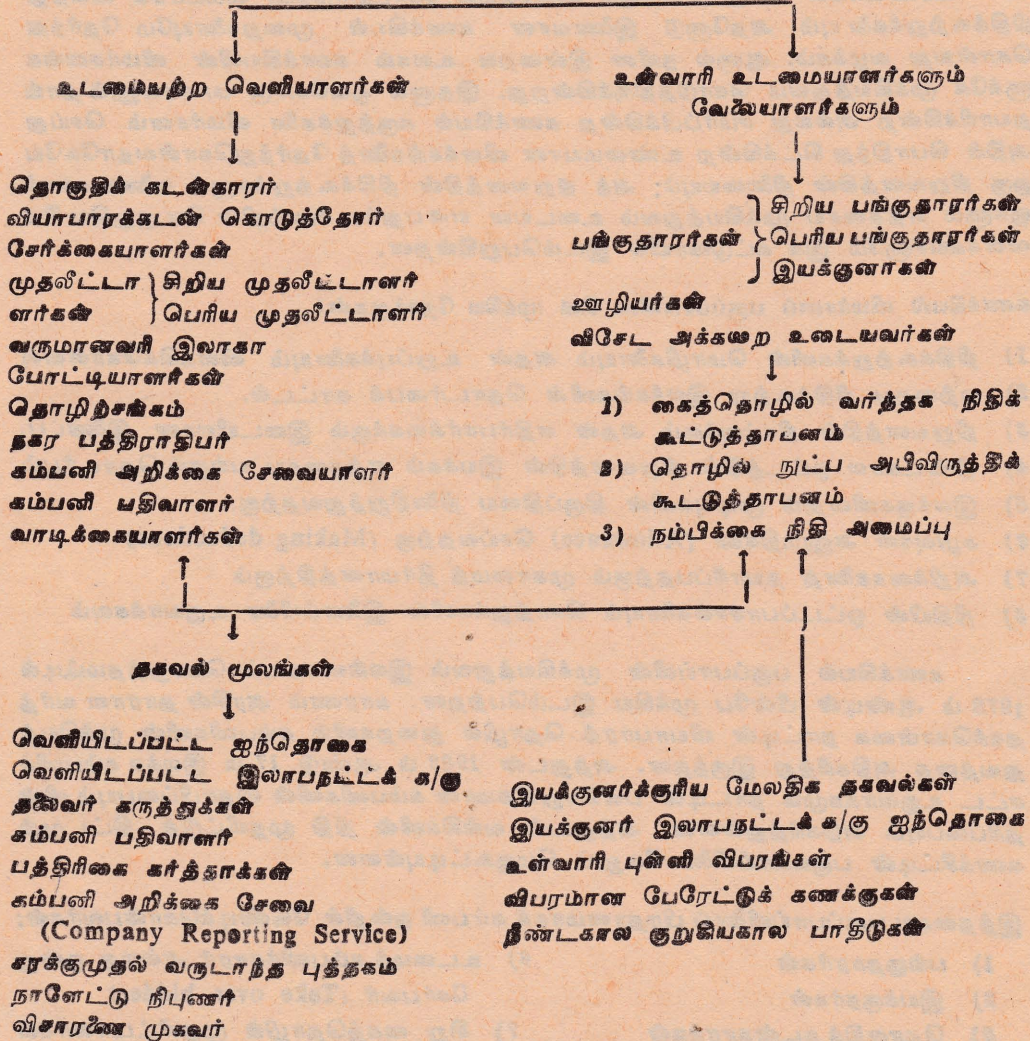 உடமையற்ற வெளியாளர்கள்
தொகுதிக் கடன்காரர்
வியாபாரக்கடன் கொடுத்தோர்
சேர்க்கையாளர்கள்
முதலீட்டா } சிறிய முதலீட்டாளர்
ளர்கள் } பெரிய முதலீட்டாளர்
வருமானவரி இலாகா
போட்டியாளர்கள்
தொழிற்சங்கம்
நகர பத்திராதிபர்
கம்பனி அறிக்கை சேவையாளர்
கம்பனி பதிவாளர்
வாடிக்கையாளர்கள்
உள்வாரி உடமையாளர்களும்
வேலையாளர்களும்
சிறிய பங்குதாரர்கள்
பங்குதாரர்கள் } பெரிய பங்குதாரர்கள்
இயக்குனாகள்
ஊழியர்கள்
விசேட அக்கறை உடையவர்கள்
1) கைத்தொழில் வர்த்தக நிதிக்
கூட்டுத்தாபனம்
2) தொழில் நுட்ப அபிவிருத்திக்
கூடடுத்தாபனம்
3) நம்பிக்கை நிதி அமைப்பு
தகவல் மூலங்கள்
வெளியிடப்பட்ட ஐந்தொகை
வெளியிடப்பட்ட இலாபநட்டக் க/கு
தலைவர் கருத்துக்கள்
கம்பனி பதிவாளர்
பத்திரிகை கர்த்தாக்கள்
கம்பனி அறிக்கை சேவை
(Company Reporting Service)
சரக்குமுதல் வருடாந்த புத்தகம்
நாளேட்டு நிபுணர்
விசாரணை முகவர்
இயக்குனர்க்குரிய மேலதிக தகவல்கள்
இயக்குனர் இலாபநட்டக் க/கு ஐந்தொகை
உள்வாரி புள்ளி விபரங்கள்
விபரமான பேரேட்டுக் கணக்குகள்
நீண்டகால குறுகியகால பாதீடுகள்